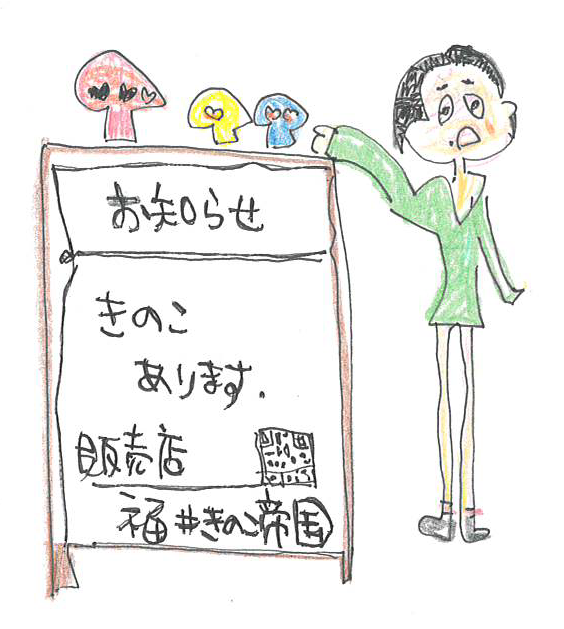 お知らせ
きのこ
あります.
販売店
福井きのこ帝国